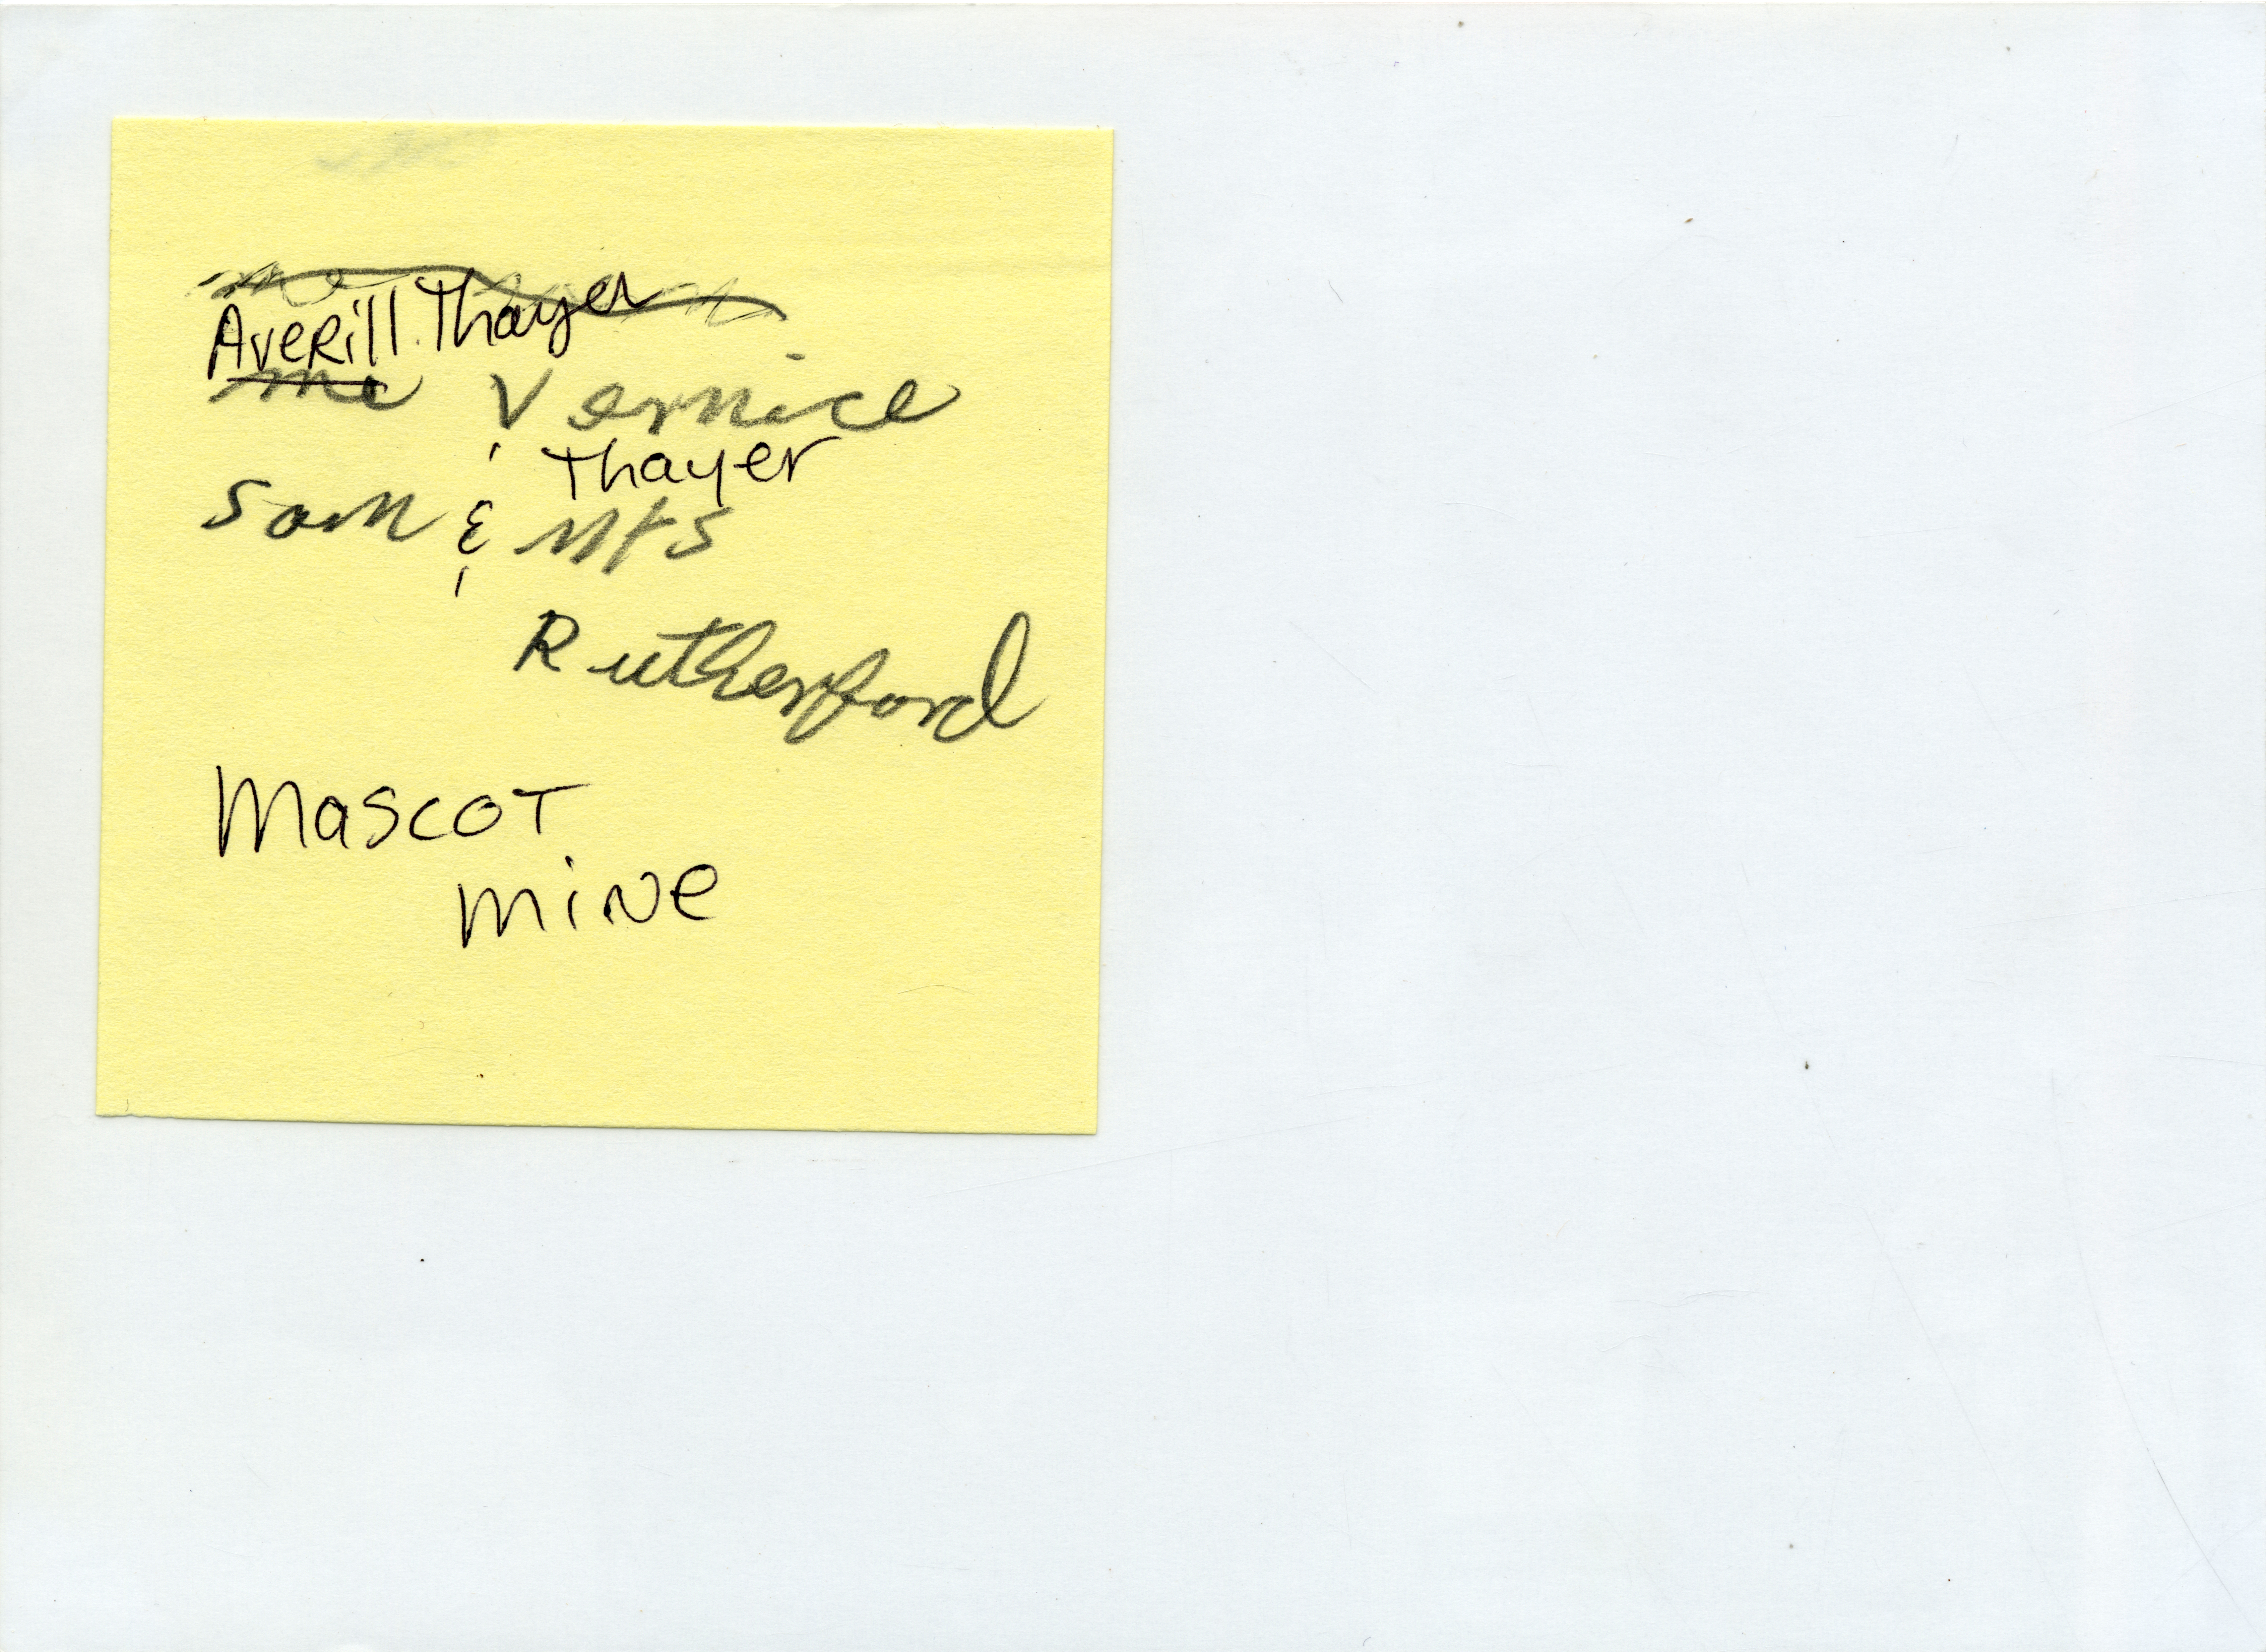 Averill Thayer
me Vernice
Thayer
Sam & Mrs
Rutherford
Mascot
mine